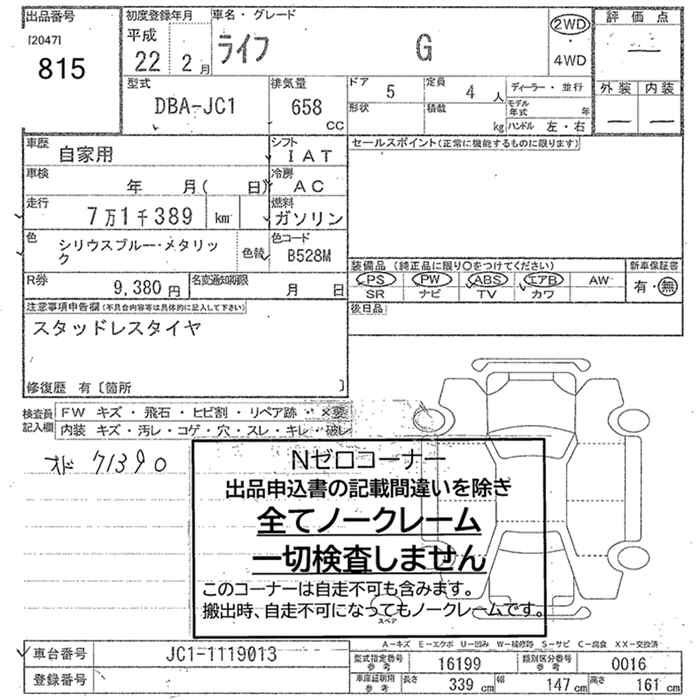 出品番号
[2047]
815
初度登録年月
平成
22 2 月
車名・グレード
ライフ G
2WD
・
4WD
評価点
―
外装 内装
― ―
型式
DBA-JC1
排気量
658
CC
ドア 5
定員 4 人
ディーラー・並行
形状
積載 kg
モデル年式 年
ハンドル 左・右
車歴
自家用
シフト
IAT
セールスポイント(正常に機能するものに限ります)
車検
年 月( 日)
冷房
AC
走行
7万1千389 km
燃料
ガソリン
色
シリウスブルー・メタリック
色替
色コード
B528M
装備品 (純正品に限り○をつけてください)
PS PW ABS エアB AW
SR ナビ TV カワ
新車保証書
有・無
R券
9,380 円
名変通知期限
月 日
後日品
注意事項申告欄(不具合内容等は具体的に記入して下さい)
スタッドレスタイヤ
修復歴 有〔箇所 〕
検査員記入欄
FW キズ・飛石・ヒビ割・リペア跡・×要
内装 キズ・汚レ・コゲ・穴・スレ・キレ・破レ
オド 71390
Nゼロコーナー
出品申込書の記載間違いを除き
全てノークレーム
一切検査しません
このコーナーは自走不可も含みます。
搬出時、自走不可になってもノークレームです。
スペア
A-キズ E-エクボ U-凹み W-補修跡 S-サビ C-腐食 XX-交換済
車台番号 JC1-1119013
登録番号
型式指定番号 参考 16199
類別区分番号 参考 0016
車庫証明用 参考 長さ 339 cm 幅 147 cm 高さ 161 cm